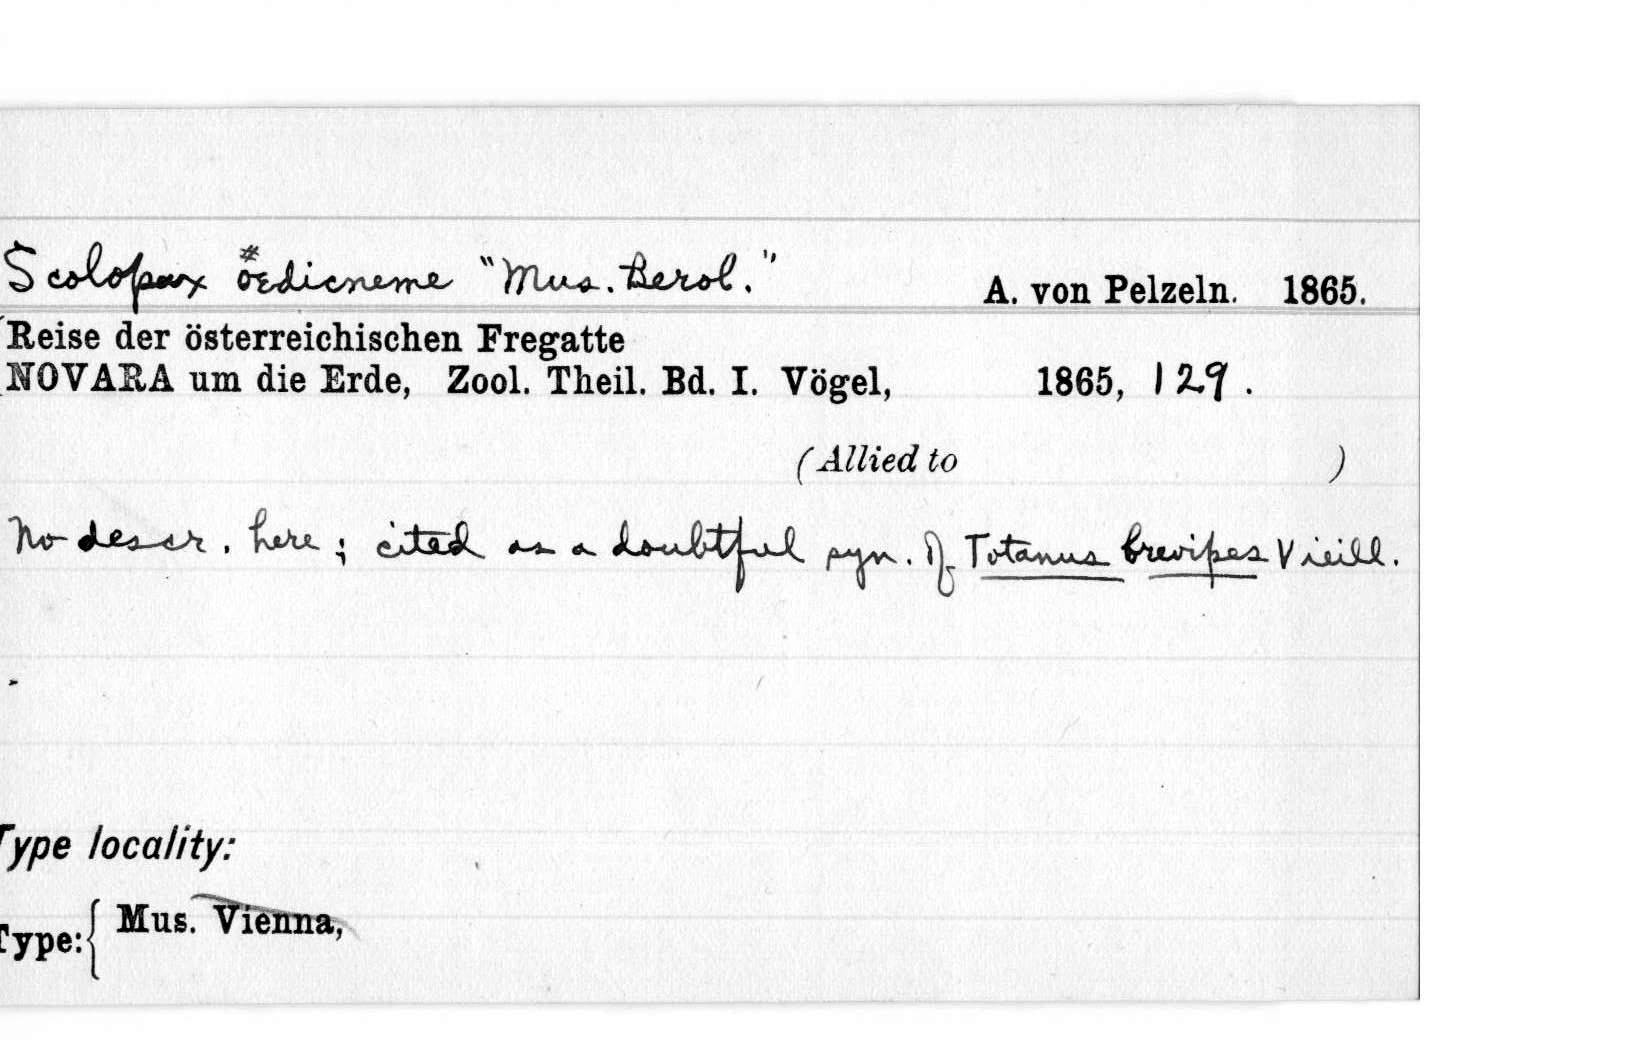 Scolopax öedicneme "Mus. Berol." A. von Pelzeln. 1865.
Reise der österreichischen Fregatte
NOVARA um die Erde, Zool. Theil. Bd. I. Vögel, 1865, 129.
(Allied to )
No descr. here; cited as a doubtful syn. of Totanus brevipes Vieill.
Type locality:
Type: { Mus. Vienna,